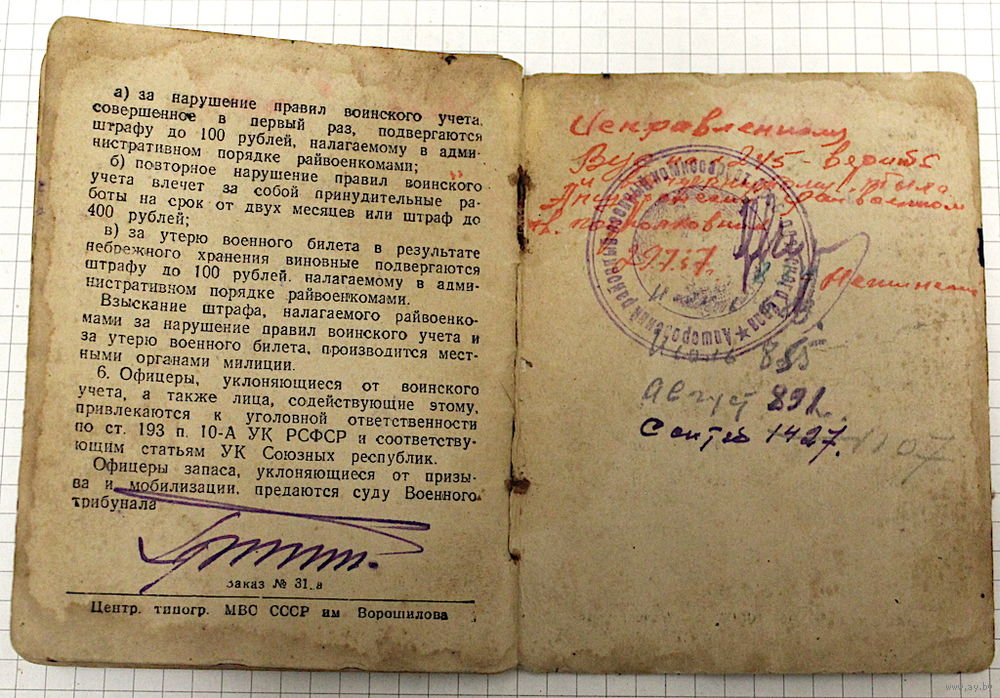 а) за нарушение правил воинского учета,
совершенное в первый раз, подвергаются
штрафу до 100 рублей, налагаемому в адми-
нистративном порядке райвоенкомами;
б) повторное нарушение правил воинского
учета влечет за собой принудительные ра-
боты на срок от двух месяцев или штраф до
400 рублей;
в) за утерю военного билета в результате
небрежного хранения виновные подвергаются
штрафу до 100 рублей, налагаемому в адми-
нистративном порядке райвоенкомами.
Взыскание штрафа, налагаемого райвоенко-
мами за нарушение правил воинского учета и
за утерю военного билета, производится мест-
ными органами милиции.
6. Офицеры, уклоняющиеся от воинского
учета, а также лица, содействующие этому,
привлекаются к уголовной ответственности
по ст. 193 п. 10-А УК РСФСР и соответству-
ющим статьям УК Союзных республик.
Офицеры запаса, уклоняющиеся от призы-
ва и мобилизации, предаются суду Военного
трибунала
заказ № 31.в
Центр. типогр. МВС СССР им Ворошилова
Исправленному
245 - верить
тыла
райвоенком
подполковник
Апшеронский районный военный комиссариат
855
Август 891
Сентяб 1427.
1107
www.ay.by